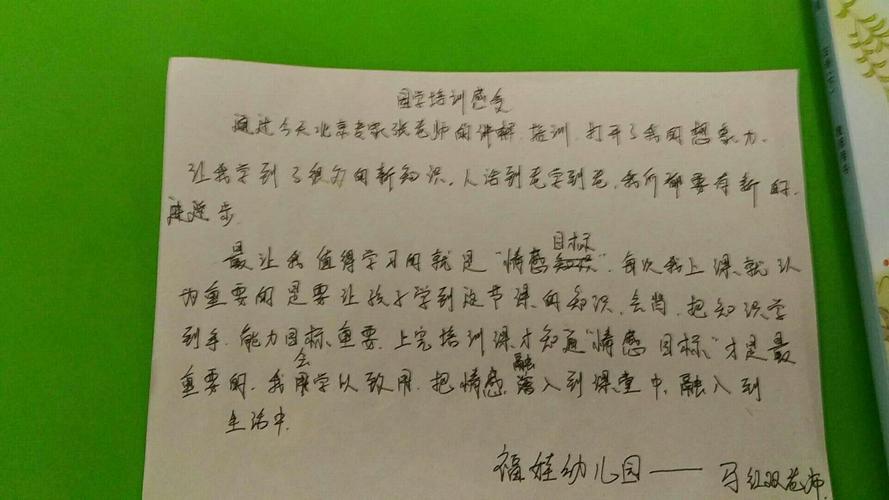 国学培训感受
通过今天北京专家张老师的讲解.培训.打开了我的想象力.
让我学到了很多的新知识。人活到老学到老.我们都要有新的.
进步.
最让我值得学习的就是“情感目标”.每次我上课就认
为重要的是要让孩子学到这节课的知识.会背.把知识学
到手.能力目标重要.上完培训课才知道“情感目标”才是最
重要的.我会用学以致用.把情感融入到课堂中.融入到
生活中.
福娃幼儿园——马红双老师.